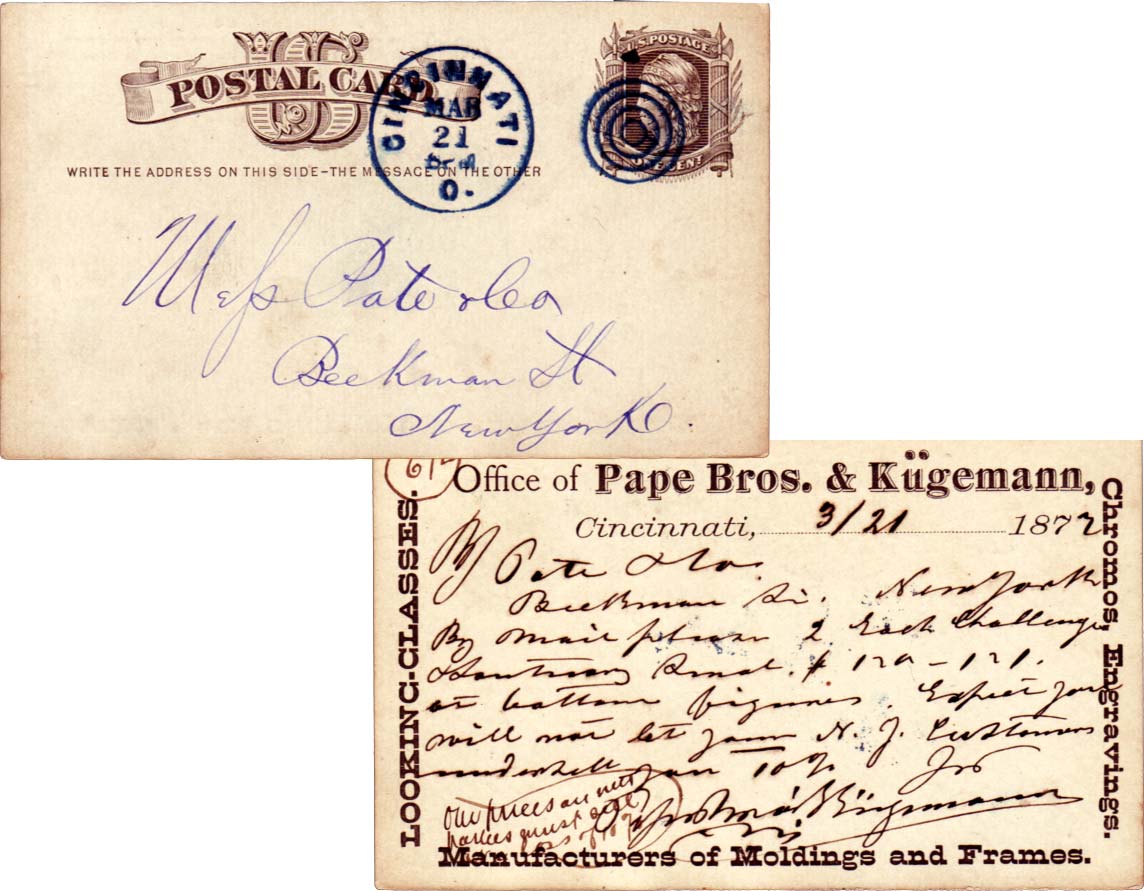 POSTAL CARD
US
CINCINNATI
MAR
21
O.
U.S. POSTAGE
ONE CENT
WRITE THE ADDRESS ON THIS SIDE-THE MESSAGE ON THE OTHER
Mess Pate & Co
Beekman St
New York.
Office of Pape Bros. & Kügemann,
Cincinnati, 3/21 1877
LOOKING-GLASSES.
Chromos, Engravings.
Pate & Co.
Beekman St. New York
By mail please 2 Each Challenge
&
at bottom figures. Expect you
will not let your N. J. Customers
undersell you 10%
Our prices are net
parties must
Pape Bros & Kügemann
Manufacturers of Moldings and Frames.